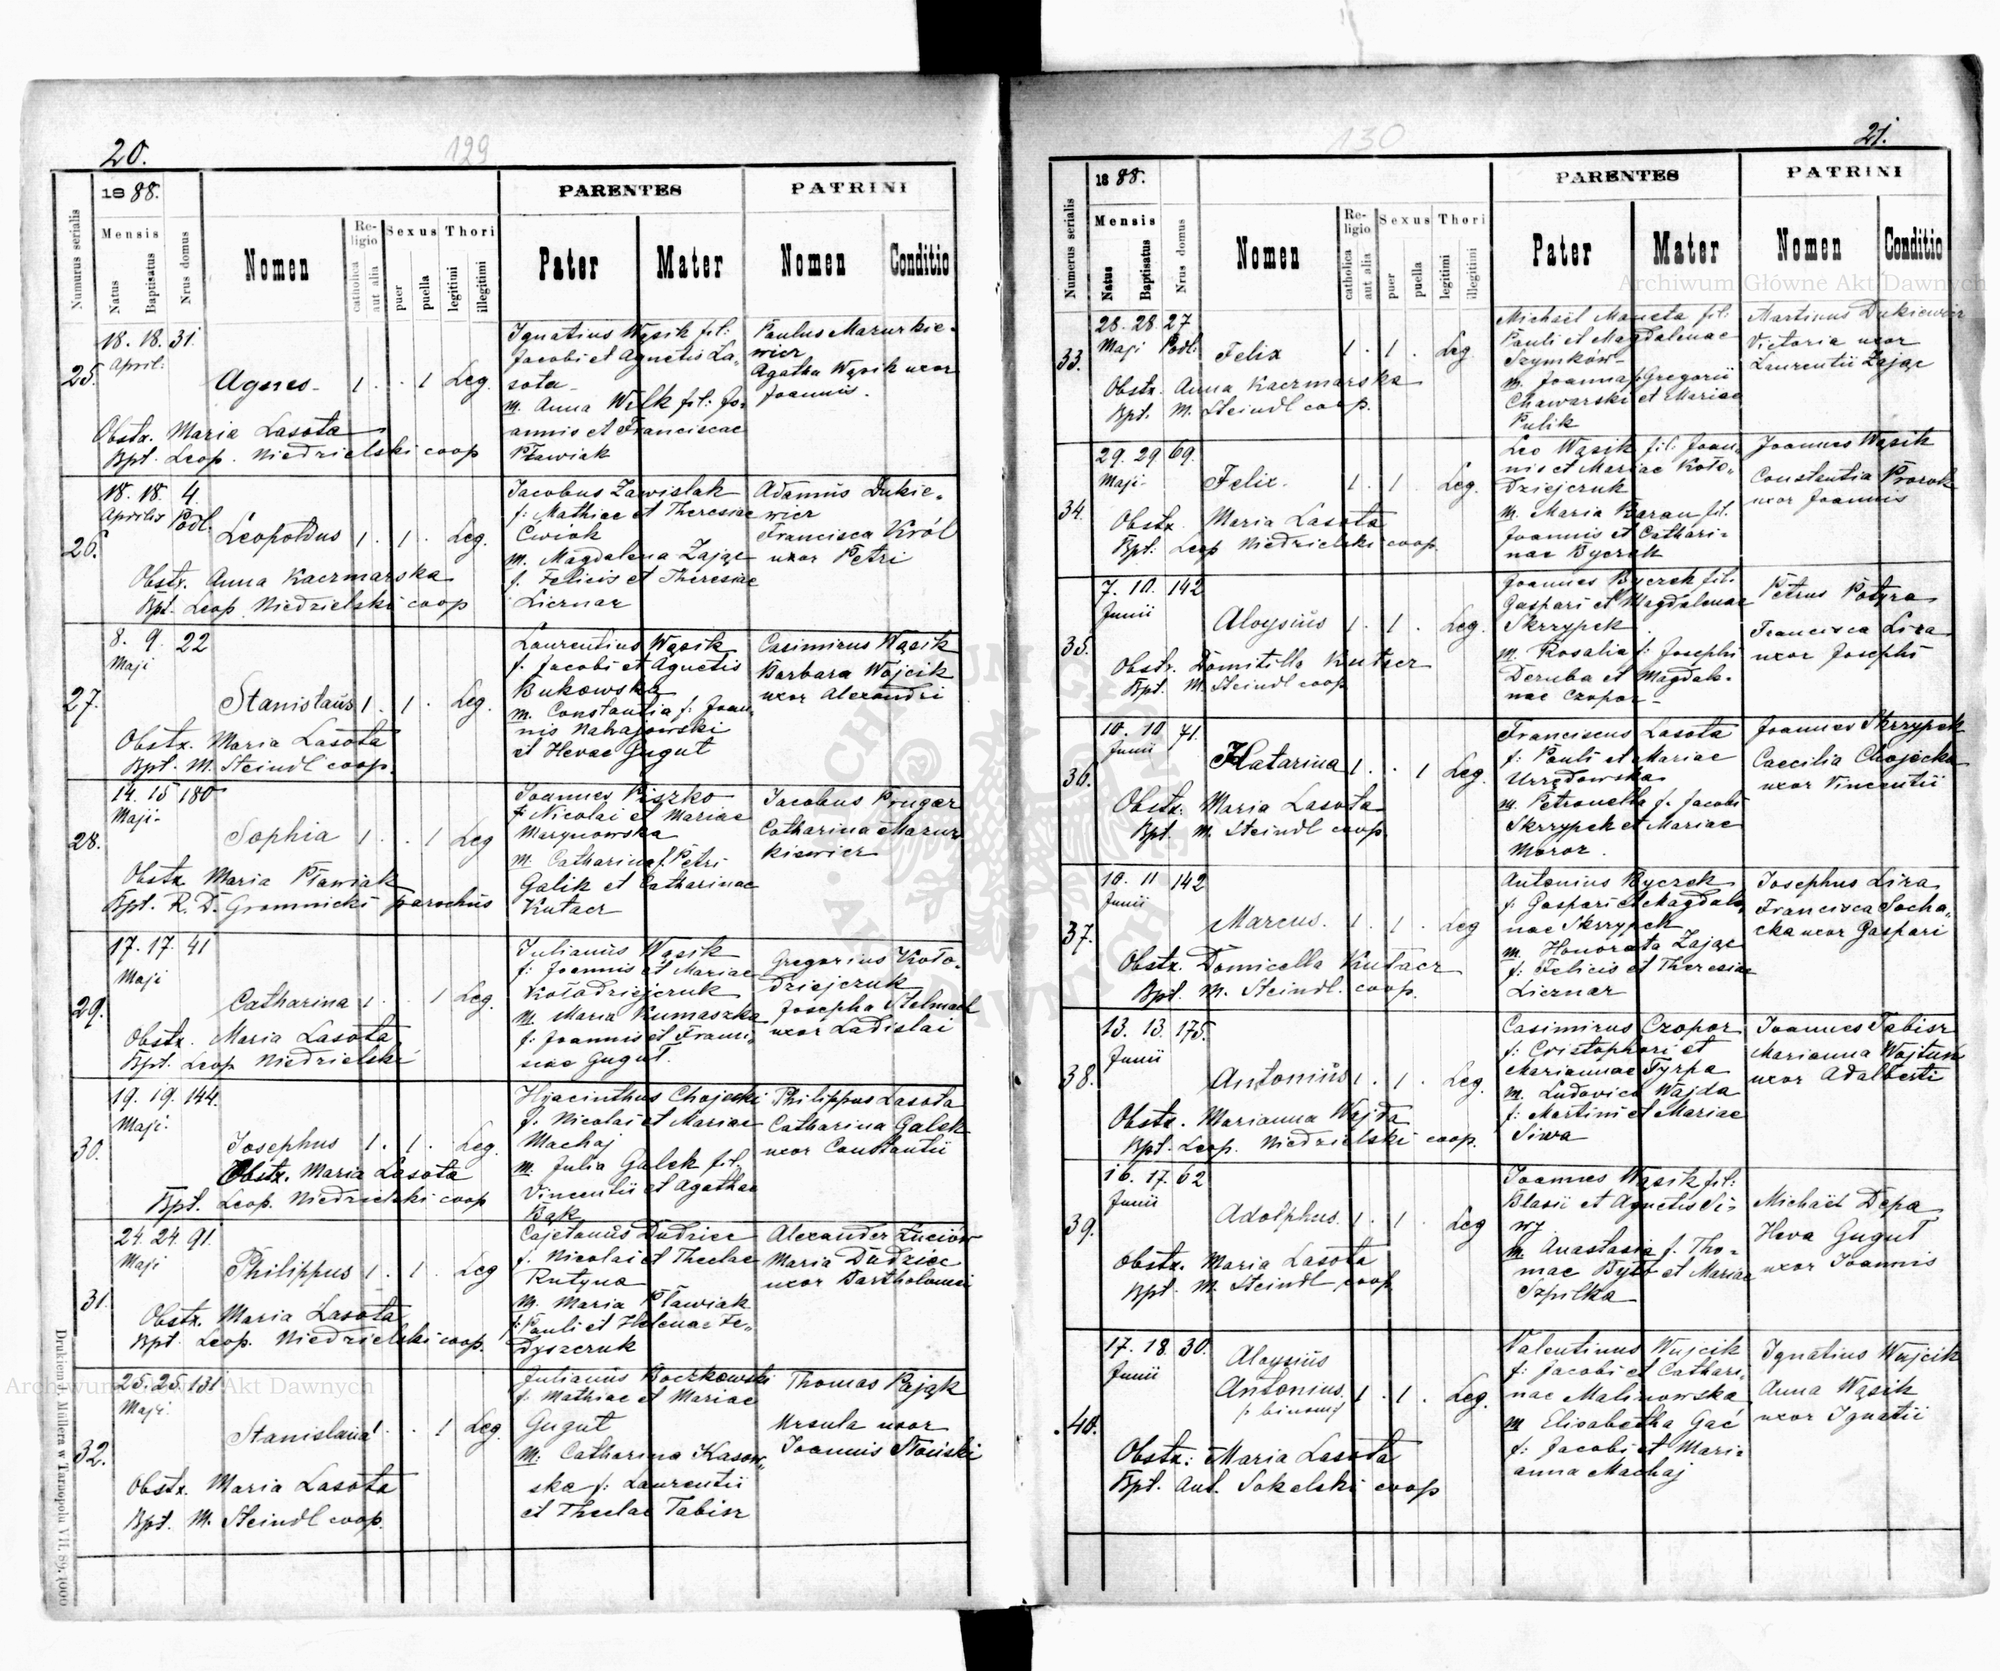 20.
129
Numerus serialis
1888.
Mensis
Natus
Baptisatus
Nrus domus
Nomen
Religio
catholica
aut alia
Sexus
puer
puella
Thori
legitimi
illegitimi
PARENTES
Pater
Mater
PATRINI
Nomen
Conditio
25.
18. 18. 31.
April:
Agnes 1 . . 1 Leg.
Obstx. Maria Lasota
Bpt. Leop. Niedzielski coop
Ignatius Wąsik fil:
Jacobi et Agnetis La-
sota
m. Anna Wilk fil: Jo-
annis et Franciscae
Pławiak
Paulus Mazurkie-
wicz
Agatha Wąsik uxor
Joannis.
26.
18. 18. 4.
Aprilis Podl.
Leopoldus 1 . 1 . Leg.
Obstx. Anna Kaczmarska
Bpt. Leop. Niedzielski coop
Jacobus Zawislak
f: Mathiae et Theresiae
Cwiok
m. Magdalena Zając
f. Felicis et Theresiae
Licznar
Adamus Dukie-
wicz
Francisca Król
uxor Petri
27.
8. 9. 22
Maji
Stanislaus 1 . 1 . Leg.
Obstx. Maria Lasota
Bpt. M. Steindl coop.
Laurentius Wąsik
f. Jacobi et Agnetis
Bukowska
m. Constantia f: Joan-
nis Nahajowski
et Hevae Gugut
Casimirus Wąsik
Barbara Wojcik
uxor Alexandri
28.
14. 15 180
Maji
Sophia 1 . . 1 Leg
Obstx Maria Pławiak
Bpt. R. D. Gromnicki parochus
Joannes Piszko
f: Nicolai et Mariae
Marynowska
m. Catharina f. Petri
Galik et Catharinae
Kutacz
Jacobus Prugar
Catharina Mazur
kiewicz
29.
17. 17. 41
Maji
Catharina 1 . . 1 Leg.
Obstx. Maria Lasota
Bpt. Leop Niedzielski
Julianus Wąsik
f: Joannis et Mariae
Kołodziejczuk
m. Maria Kumaszka
f: Joannis et Franci-
scae Gugut.
Gregorius Koło-
dziejczuk
Josepha Stelmach
uxor Ladislai
30.
19. 19. 144.
Maji
Josephus 1 . 1 . Leg.
Obstx. Maria Lasota
Bpt. Leop. Niedzielski coop
Hyacinthus Chojecki
f. Nicolai et Mariae
Machaj
m. Julia Galek fil:
Vincentii et Agathae
Bąk
Philippus Lasota
Catharina Galek
uxor Constantii
31.
24. 24. 91.
Maji
Philippus 1 . 1 . Leg
Obstx. Maria Lasota
Bpt. Leop. Niedzielski coop.
Cajetanus Dudzic
f. Nicolai et Theclae
Rutyna
m. Maria Pławiak
f: Pauli et Helenae Fe-
dyszczuk
Alexander
Maria Dudzic
uxor Bartholomei
32.
25. 25 131
Maji.
Stanislaua 1 . . 1 Leg.
Obstx. Maria Lasota
Bpt. M. Steindl coop.
Julianus Boczkowski
f. Mathiae et Mariae
Gugut
m. Catharina Kasow-
ska f: Laurentii
et Theclae Tabisz
Thomas Pająk
Ursula uxor
Joannis
Drukiem J. Müllera w Tarnopolu VII. 89. 1000
Archiwum Główne Akt Dawnych
130
21.
Numerus serialis
1888.
Mensis
Natus
Baptisatus
Nrus domus
Nomen
Religio
catholica
aut alia
Sexus
puer
puella
Thori
legitimi
illegitimi
PARENTES
Pater
Mater
PATRINI
Nomen
Conditio
Archiwum Główne Akt Dawnych
33.
28. 28. 27
Maji Podl.
Felix 1 . 1 . Leg
Obstx. Anna Kaczmarska
Bpt. M. Steindl coop.
Michael Maneta fil:
Pauli et Magdalenae
Szymków
m. Joanna f. Gregorii
Chawarski et Mariae
Pulik
Martinus Dukiewicz
Victoria uxor
Laurentii Zając
34.
29. 29 69.
Maji
Felix. 1 . 1 . Leg.
Obstx. Maria Lasota
Bpt: Leop Niedzielski coop.
Leo Wąsik fil: Joan-
nis et Mariae Koło-
dziejczuk
m. Maria Baran fil.
Joannis et Cathari-
nae Byczek
Joannes Wąsik
Constantia Prorok
uxor Joannis
35.
7. 10. 142
Junii
Aloysius 1 . 1 . Leg.
Obstx. Domitilla Kutacz
Bpt. M. Steindl coop.
Joannes Byczek fil.
Gaspari et Magdalenae
Skrzypek
m. Rosalia f: Josephi
Deruba et Magdale-
nae Czopor
Petrus Potyra
Francisca Liza
uxor Josephi
36.
10. 10 71.
Junii
Katarina 1 . . 1 Leg.
Obstx. Maria Lasota
Bpt. M. Steindl coop.
Franciscus Lasota
f. Pauli et Mariae
Urzędowska
m. Petronella f. Jacobi
Skrzypek et Mariae
Moroz.
Joannes Skrzypek
Caecilia Chojecka
uxor Vincentii
37.
10. 11 142
Junii
Marcus. 1 . 1 . Leg
Obstx. Domicella Kutacz
Bpt. M. Steindl. coop.
Antonius Byczek
f: Gaspari et Magdale-
nae Skrzypek
m. Honorata Zając
f: Felicis et Theresiae
Licznar
Josephus Liza
Francisca Socha-
cka uxor Gaspari
38.
13. 13. 175.
Junii
Antonius 1 . 1 . Leg.
Obstx. Marianna Wajda
Bpt. Leop. Niedzielski coop.
Casimirus Czopor
f: Cristophori et
Mariannae Tyrpa
m. Ludovica Wajda
f: Martini et Mariae
Siwa
Joannes Tabisz
Marianna Wojtun
uxor Adalberti
39.
16. 17. 62
Junii
Adolphus. 1 . 1 . Leg
Obstx. Maria Lasota
Bpt. M. Steindl coop.
Joannes Wąsik fil:
Blasii et Agnetis Si-
wy
m. Anastasia f. Tho-
mae Byto et Mariae
Szpilka
Michael Depa
Heva Gugut
uxor Joannis
40.
17. 18. 30.
Junii
Aloysius
Antonius 1 . 1 . Leg.
Obstx: Maria Lasota
Bpt. Ant. Sokelski coop
Valentinus Wujcik
f: Jacobi et Cathari-
nae Malinowska
m Elisabetha Gać
f: Jacobi et Mari-
anna Machaj
Ignatius Wujcik
Anna Wąsik
uxor Ignatii